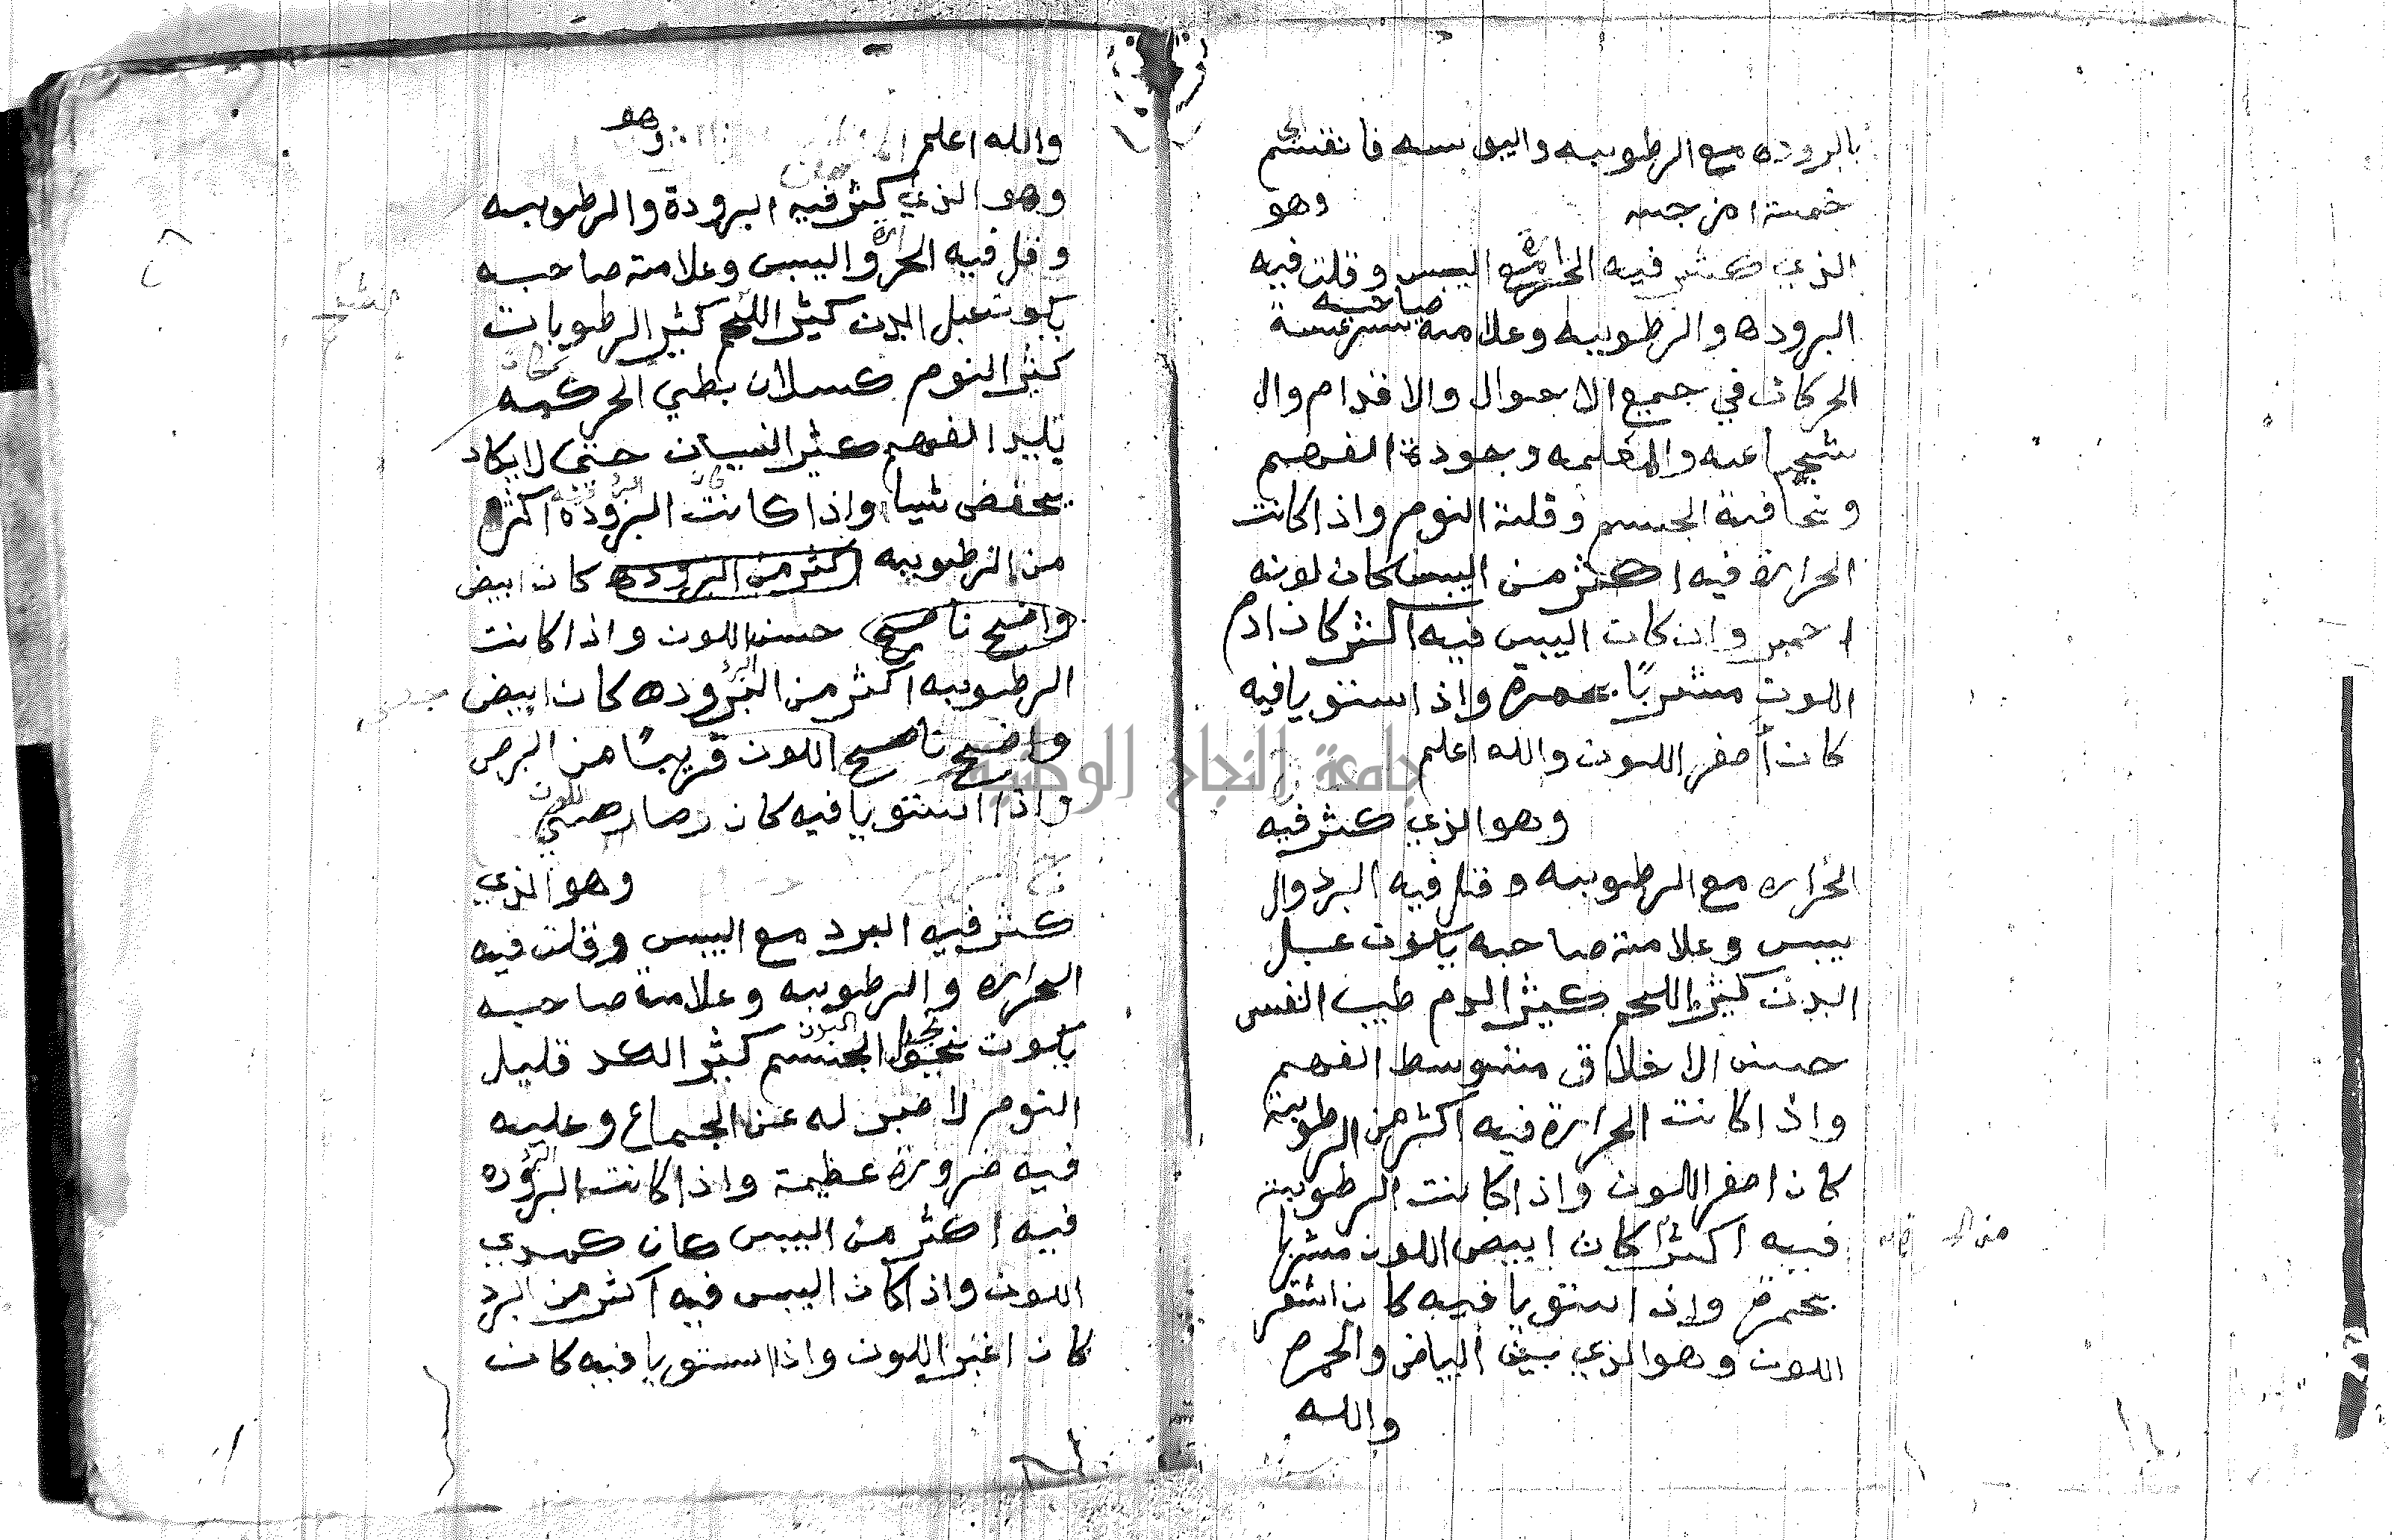 بالبروده مع الرطوبيه واليبوسه فانقسم الي
خمسة امزجه وهو
الذي كثر فيه الحرارة اليبس وقلت فيه
البروده والرطوبيه وعلامة صاحبه سرعسة
الحركات في جميع الاحوال والاقدام وال
شجاعه والمغلبه وجودة الفهم
ونحافة الجسم وقلة النوم واذا كانت
الحرارة فيه اكثر من اليبس كان لونه
احمر وان كان اليبس فيه اكثر كان ادم
اللون مشربًا بحمرة واذا استويا فيه
كان أصفر اللون والله اعلم
وهو الذي كثر فيه
الحراره مع الرطوبيه وقل فيه البرد وال
يبس وعلامة صاحبه يكون عبل
البدن كثير اللحم كثير الدم طيب النفس
حسن الاخلاق متوسط الفهم
واذا كانت الحرارة فيه اكثر من الرطوبية
كان اصفر اللون واذا كانت الرطوبية
فيه اكثر كان ابيض اللون مشربا
بحمرة واذ استويا فيه كان اشقر
اللون وهو الذي بين البياض والحمره
والله
والله اعلم وهو
وهو الذي كثر فيه البرودة والرطوبيه
وقل فيه الحرارة واليبس وعلامة صاحبه
يكون عبل البدن كثير اللحم كثير الرطوبات
كثير النوم كسلان بطي الحركه
بليد الفهم كثير النسيان حتي لا يكاد
يحفض شيا واذا كانت البروده اكثر
من الرطوبيه اكثر من البروده كان ابيض
واضح ناصح حسن اللون واذا كانت
الرطوبيه اكثر من البروده كان ابيض
واضح ناصح اللون قريبًا من البرص
واذا استويا فيه كان رصاصي اللون
وهو الذي
كثر فيه البرد مع اليبس وقلت فيه
الحراره والرطوبيه وعلامة صاحبه
يكون الجسم كثير الكد قليل
النوم لا صبر له عن الجماع وعليه
فيه ضرورة عظيمة واذا كانت البروده
فيه اكثر من اليبس كان كمدي
اللون واذا كان اليبس فيه اكثر من البرد
كان اغبر اللون واذا استويا فيه كان
جامعة النجاح الوطنية